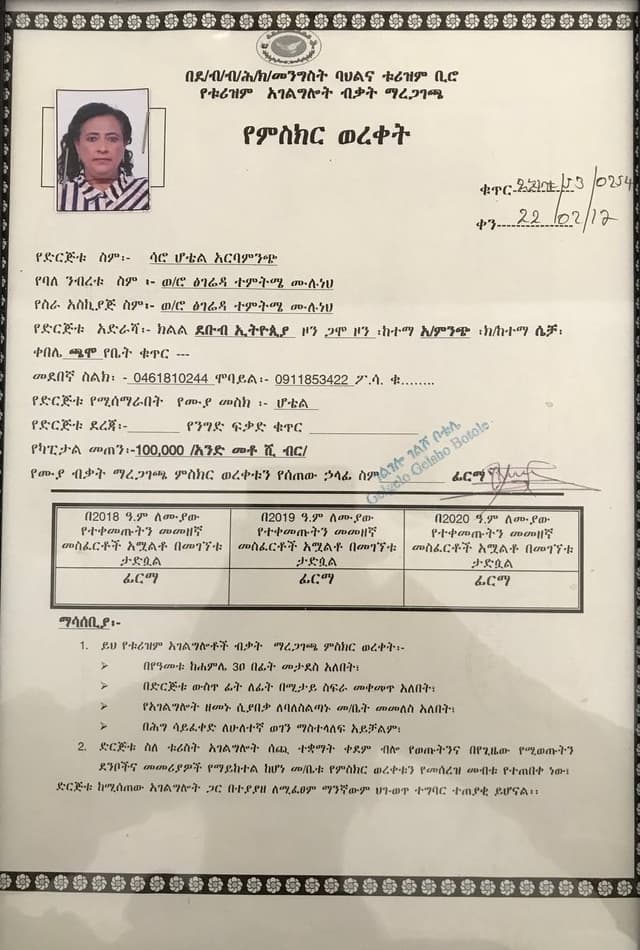 በደ/ብ/ብ/ሕ/ክ/መንግስት ባህልና ቱሪዝም ቢሮ
የቱሪዝም አገልግሎት ብቃት ማረጋገጫ
የምስክር ወረቀት
ቁጥር /53 /0254
ቀን 22/02/12
የድርጅቱ ስም፡- ሳሮ ሆቴል አርባምንጭ
የባለ ንብረቱ ስም ፡- ወ/ሮ ፅገሬዳ ተምትሜ ሙሉነህ
የስራ አስኪያጅ ስም፡- ወ/ሮ ፅገሬዳ ተምትሜ ሙሉነህ
የድርጅቱ አድራሻ፡- ክልል ደቡብ ኢትዮጲያ ዞን ጋሞ ዞን ፡ከተማ አ/ምንጭ ፡ክ/ከተማ ሴቻ፡
ቀበሌ ጫሞ የቤት ቁጥር ---
መደበኛ ስልክ፡ - 0461810244 ሞባይል፡- 0911853422 ፖ.ሳ. ቁ........
የድርጅቱ የሚሰማራበት የሙያ መስክ ፡- ሆቴል
የድርጅቱ ደረጃ፡-______ የንግድ ፍቃድ ቁጥር ____________
የካፒታል መጠን፡-100,000 /አንድ መቶ ሺ ብር/
የሙያ ብቃት ማረጋገጫ ምስክር ወረቀቱን የሰጠው ኃላፊ ስም ፊርማ
ገልገሎ ገልሾ ቦቶሌ
Gelgelo Gelsbo Botole
በ2018 ዓ.ም ለሙያው የተቀመጡትን መመዘኛ መስፈርቶች አሟልቶ በመገኘቱ ታድሷል
ፊርማ
በ2019 ዓ.ም ለሙያው የተቀመጡትን መመዘኛ መስፈርቶች አሟልቶ በመገኘቱ ታድሷል
ፊርማ
በ2020 ዓ.ም ለሙያው የተቀመጡትን መመዘኛ መስፈርቶች አሟልቶ በመገኘቱ ታድሷል
ፊርማ
ማሳሰቢያ፡-
1. ይህ የቱሪዝም አገልግሎቶች ብቃት ማረጋገጫ ምስክር ወረቀት፡-
➢ በየዓመቱ ከሐምሌ 30 በፊት መታደስ አለበት፤
➢ በድርጅቱ ውስጥ ፊት ለፊት በሚታይ ስፍራ መቀመጥ አለበት፤
➢ የአገልግሎት ዘመኑ ሲያበቃ ለባለስልጣኑ መ/ቤት መመለስ አለበት፤
➢ በሕግ ሳይፈቀድ ለሁለተኛ ወገን ማስተላለፍ አይቻልም፤
2. ድርጅቱ ስለ ቱሪስት አገልግሎት ሰጪ ተቋማት ቀደም ብሎ የወጡትንና በየጊዜው የሚወጡትን
ደንቦችና መመሪያዎች የማይከተል ከሆነ መ/ቤቱ የምስክር ወረቀቱን የመሰረዝ መብቱ የተጠበቀ ነው፤
ድርጅቱ ከሚሰጠው አገልግሎት ጋር በተያያዘ ለሚፈፀም ማንኛውም ህገ-ወጥ ተግባር ተጠያቂ ይሆናል፡፡